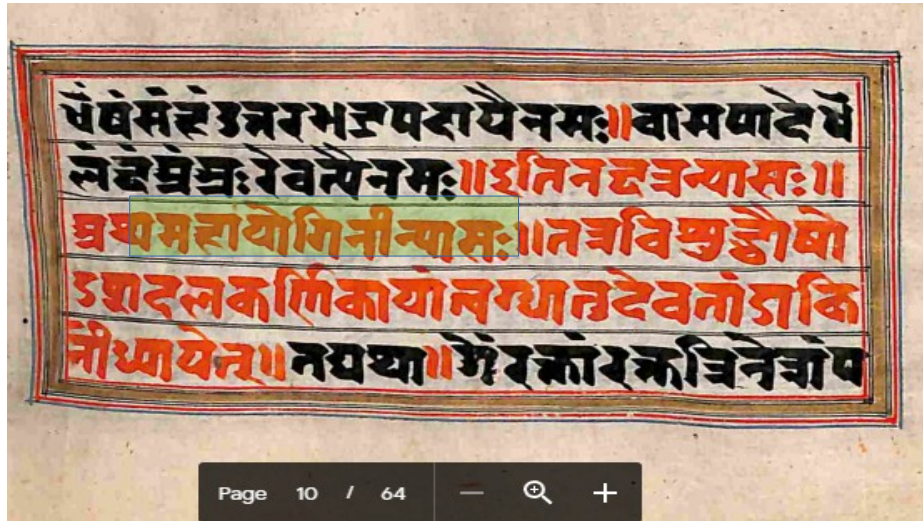 षंषंसंहंउत्तरभद्रपदायैनमः॥वामपादेऐं
लंक्षंअंअः रेवत्यैनमः॥इतिनक्षत्रन्यासः॥
अथमहायोगिनीन्यासः॥तत्रविशुद्धौषो
डशदलकर्णिकायां देवतांडाकि
नीध्यायेत्॥तद्यथा॥ रक्तांरक्तत्रिनेत्रांप
Page 10 / 64